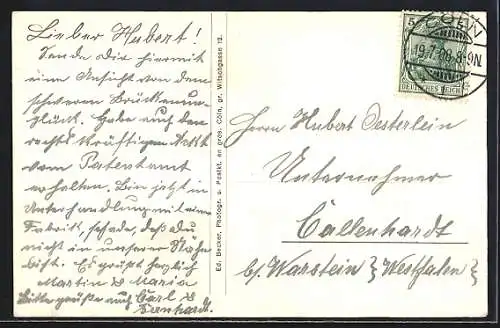 Lieber Hubert!
Sende Dir hiermit
eine Ansicht von dem
schweren Brückenun-
glück. Habe auch den
rechtskräftigen
vom Patentamt
erhalten. Bin jetzt in
Unterhandlung mit einer
Fabrik, schade, daß du
nicht in unserer Nähe
bist. Es grüßt herzlich
Martin & Maria
Bitte grüße auch Carl &
Ed. Becker, Photogr. u. Postkt. en gros. Cöln, gr. Witschgasse 12.
CÖLN
19.7.08.8-9N
5
DEUTSCHES REICH
Herrn Hubert Oesterlein
Unternehmer
Callenhardt
b/. Warstein } Westfalen }